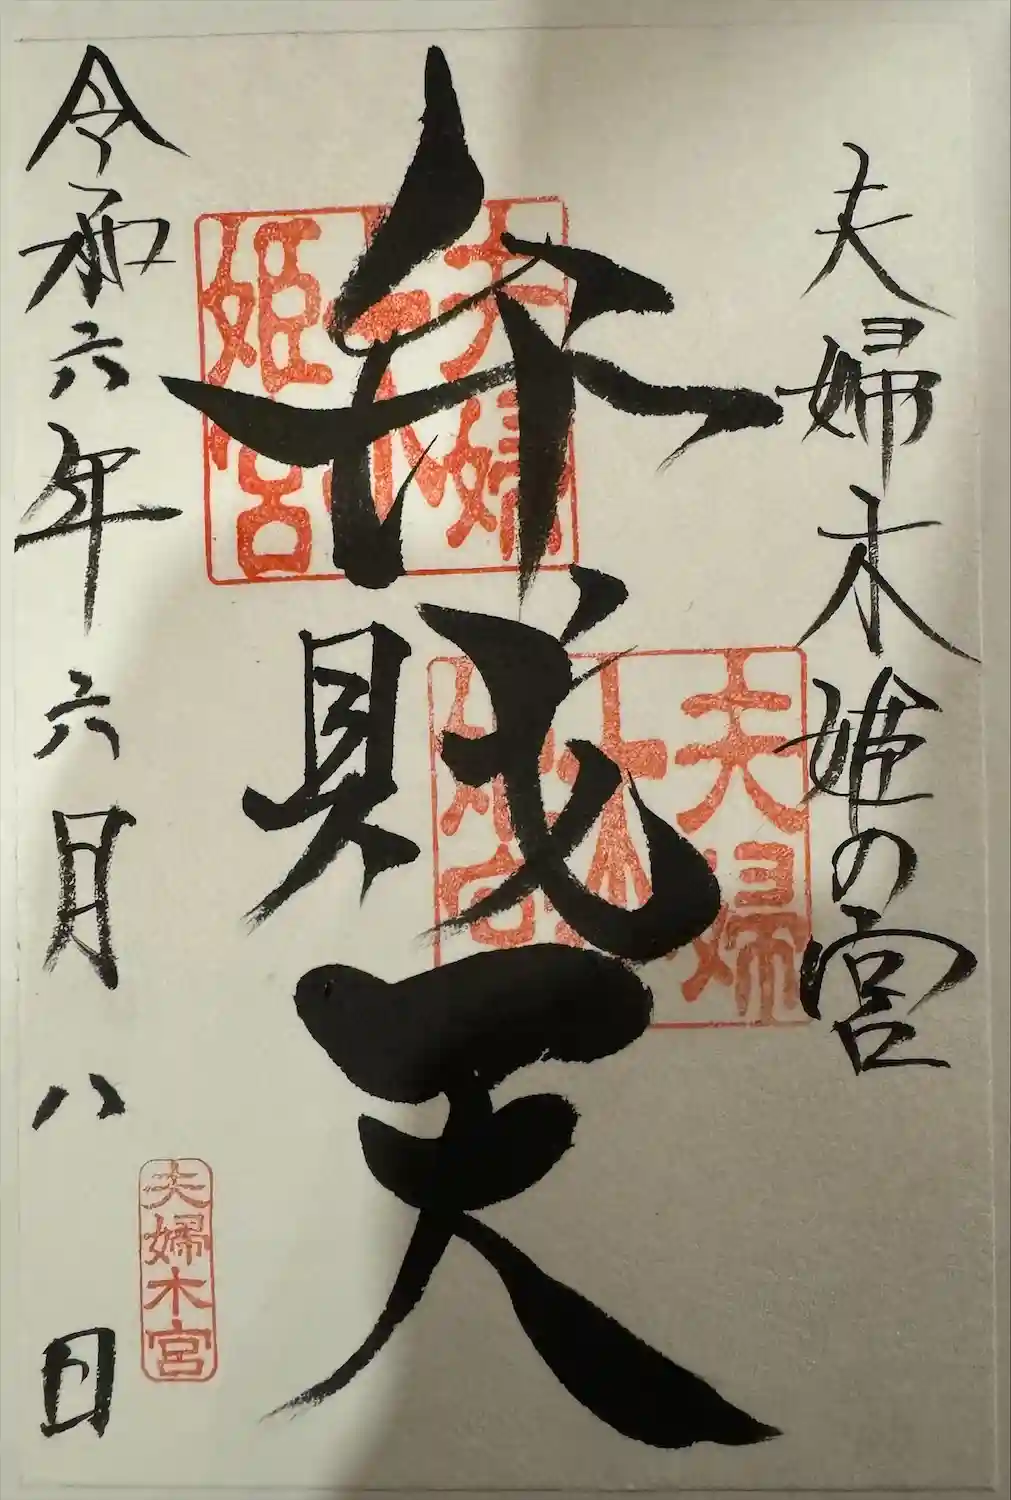 夫婦木姫の宮
弁財天
夫婦木姫宮
夫婦木姫宮
令和六年六月八日
夫婦木宮